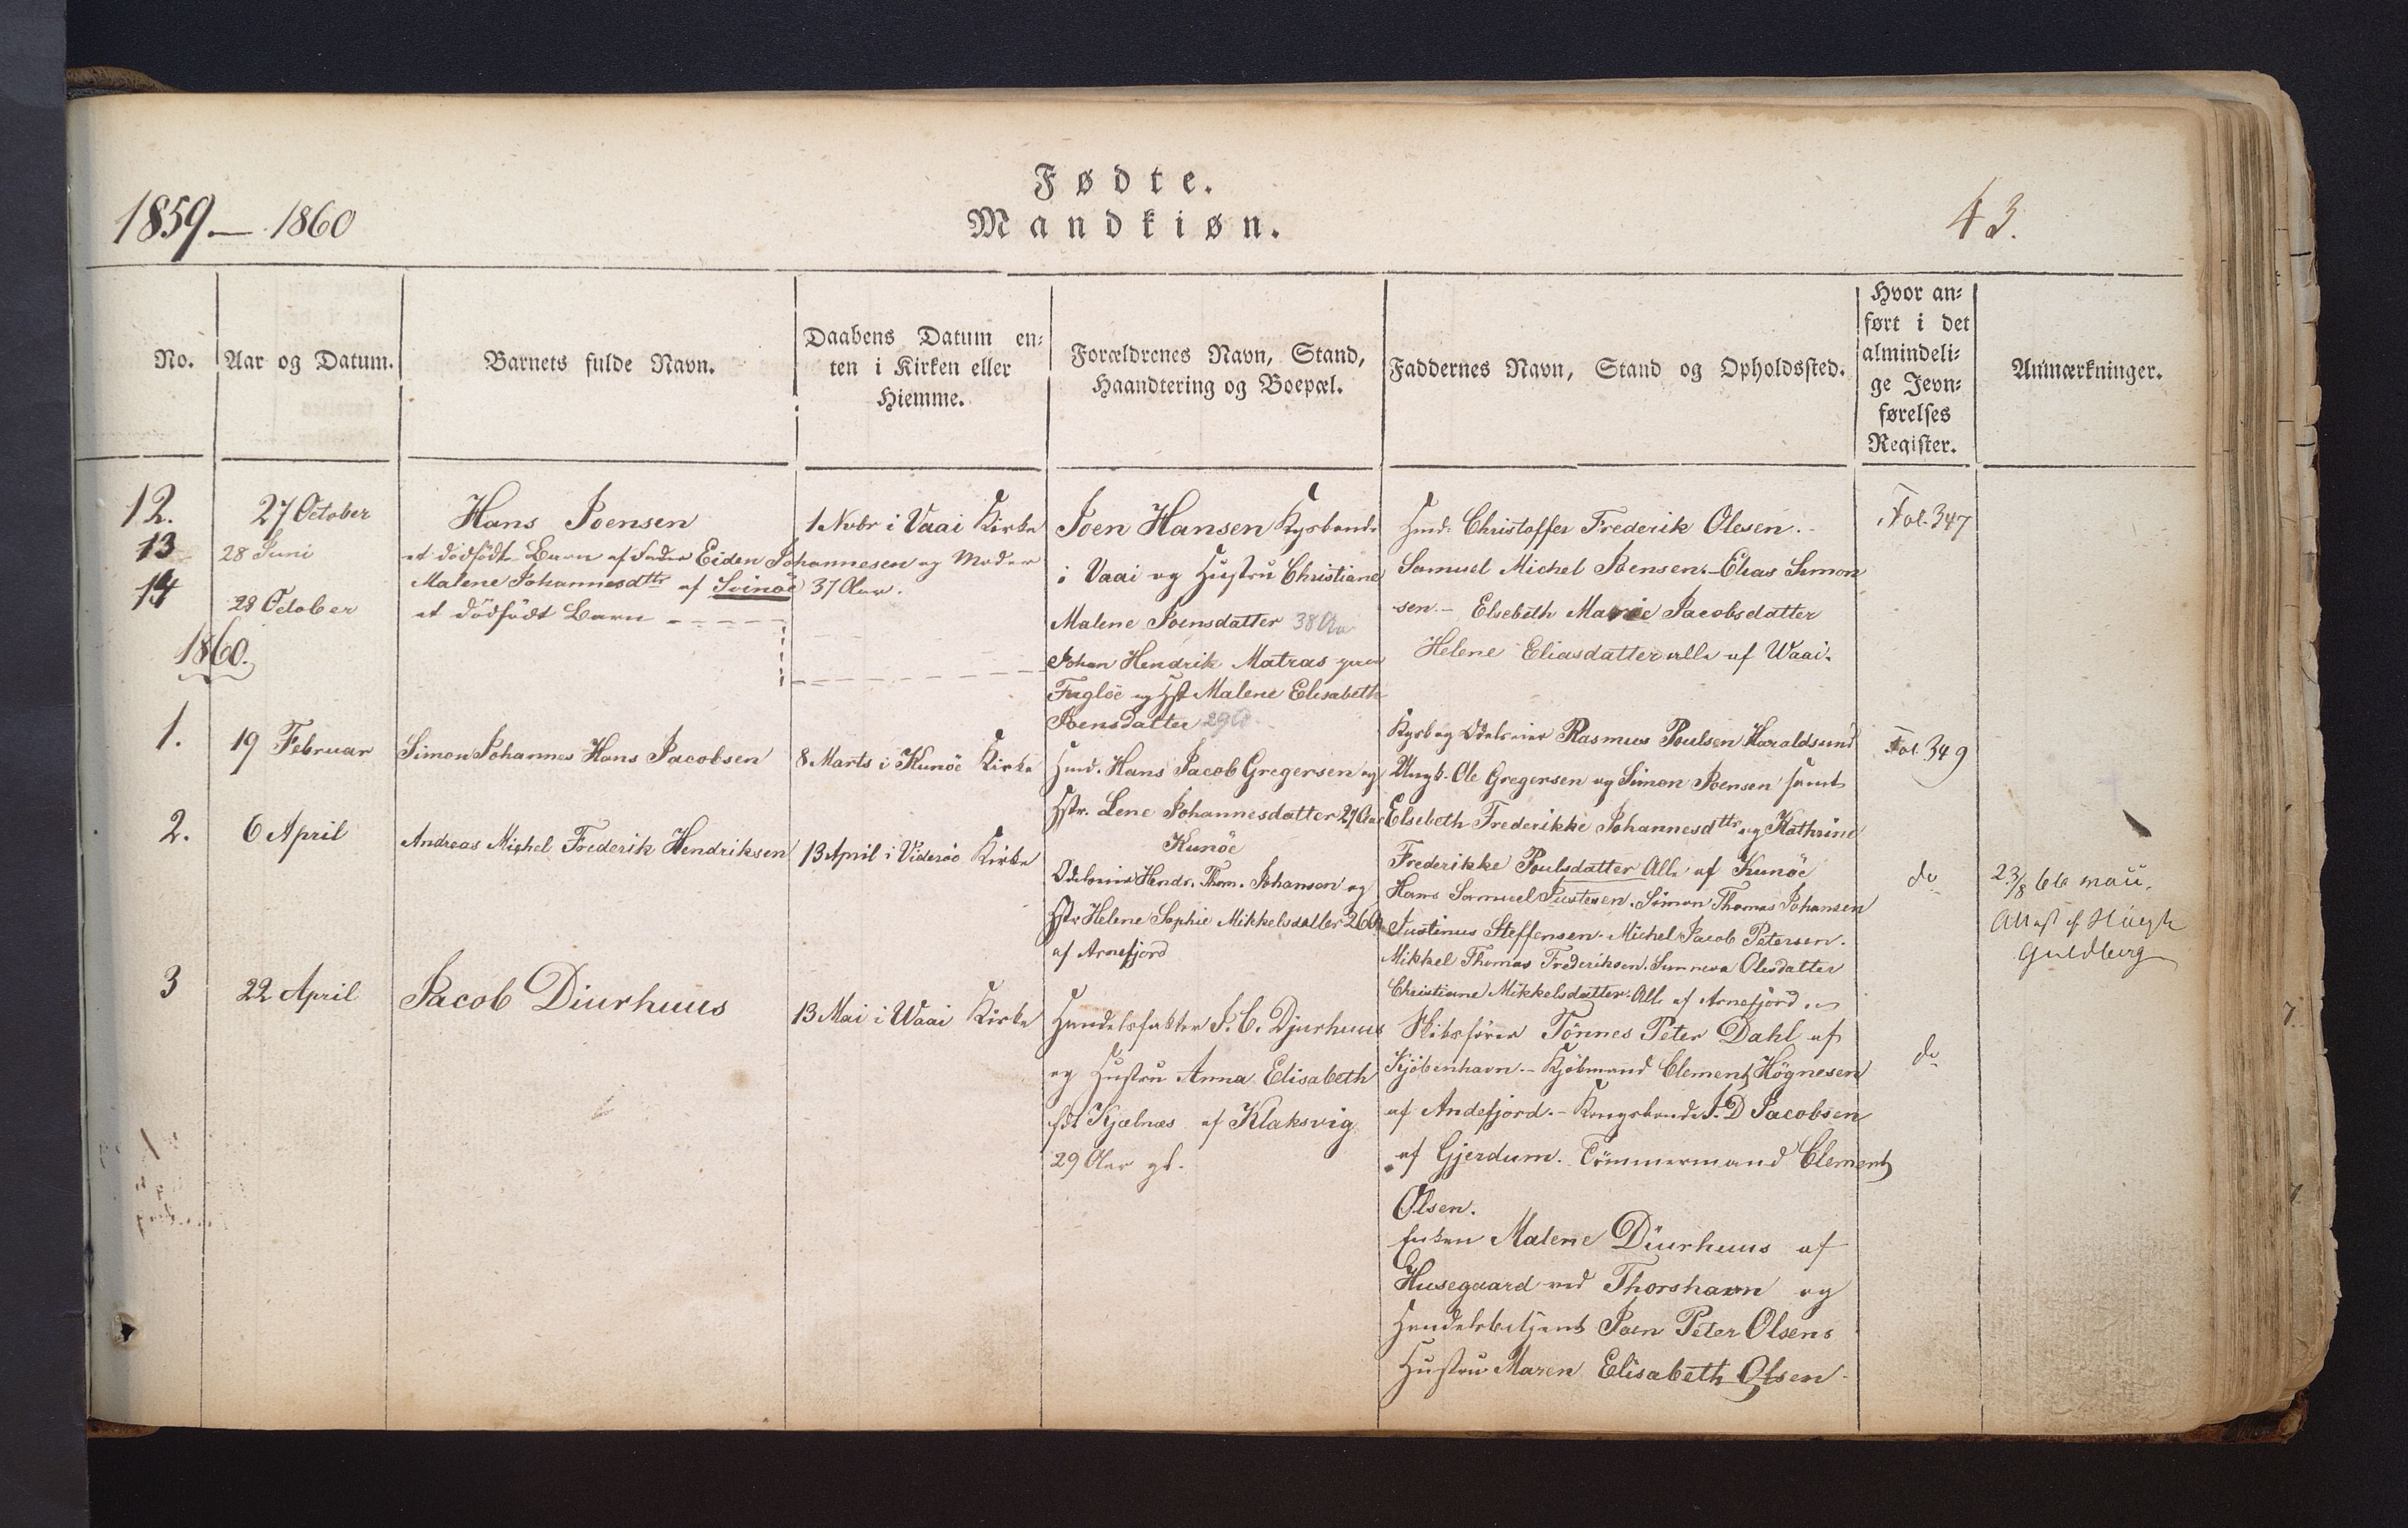 Fødte.
Mandkiøn.
1859 — 1860
43.
No.
Aar og Datum.
Barnets fulde Navn.
Daabens Datum en-
ten i Kirken eller
Hiemme.
Forældrenes Navn, Stand,
Haandtering og Boepæl.
Faddernes Navn, Stand og Opholdssted.
Hvor an-
ført i det
almindeli-
ge Jevn-
førelses
Register.
Anmærkninger.
12.
27 October
Hans Joensen
1 Nvbr i Vaai Kirke
Joen Hansen Kgsbonde
i Vaai og Hustru Christiane
Malene Joensdatter 38 Aar
Husd. Christoffer Frederik Olesen.
Samuel Michel Joensen. – Elias Simon
sen. – Elsebeth Marie Jacobsdatter
Helene Eliasdatter alle af Waai.
Fol. 347
13
28 Juni
et dödfödt Barn af Fader Eiden Johannesen og Moder
Malene Johannesdttr af Svinöe 37 Aar.
14
28 October
et dödfödt Barn
Johan Hendrik Matras
Fuglöe og Hst Malene Elisabeth
Joensdatter 29 A
1860.
1.
19 Februar
Simon Johannes Hans Jacobsen
8 Marts i Kunöe Kirke
Husd. Hans Jacob Gregersen og
Hstr. Lene Johannesdatter 27 Aar
Kunöe
Kgsb og Odelseier Rasmus Poulsen Haraldsund
Ungk. Ole Gregersen og Simon Joensen samt
Elsebeth Frederikke Johannesdttr og Kathrine
Frederikke Poulsdatter Alle af Kunöe
Fol. 349
2.
6 April
Andreas Michel Frederik Hendriksen
13 April i Videröe Kirke
Odelseier Hendr. Thom. Johansen og
Hstr Helene Sophie Mikkelsdatter 26 A
af Arnefjord
Hans Samuel Justesen. Simon Thomas Johansen
Justinus Steffensen. Michel Jacob Petersen.
Mikkel Thomas Frederiksen. Sunneva Olesdatter
Christiane Mikkelsdatter. Alle af Arnefjord.
do
23/8 66
Attest
Guldberg
3
22 April
Jacob Diurhuus
13 Mai i Waai Kirke
Handelsfaktor J. C. Djurhuus
og Hustru Anna Elisabeth
fdt Kjælnæs af Klaksvig
29 Aar gl.
Skibsförer Tönnes Peter Dahl af
Kjöbenhavn. – Kjöbmand Clement Högnesen
af Andefjord. – Kongsbonde J. D Jacobsen
af Gjerdum. Tömmermand Clement
Olsen.
Enken Malene Diurhuus af
Husegaard ved Thorshavn og
Handelsbetjent Joen Peter Olsens
Hustru Maren Elisabeth Olsen
do